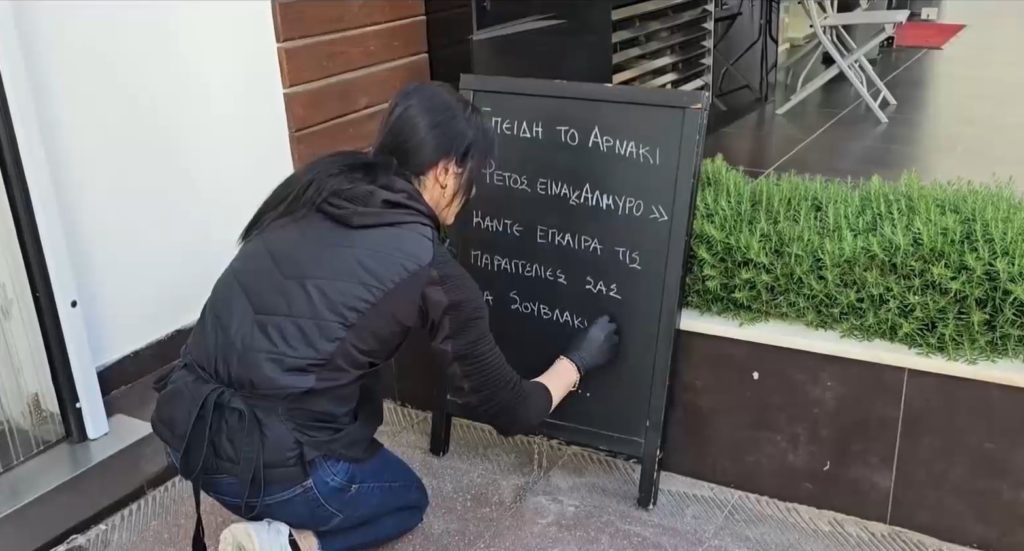 ΕΠΕΙΔΗ ΤΟ ΑΡΝΑΚΙ
ΦΕΤΟΣ ΕΙΝΑΙ ΑΛΜΥΡΟ >
ΚΑΝΤΕ ΕΓΚΑΙΡΑ ΤΙΣ
ΠΑΡΑΓΓΕΛΙΕΣ ΣΑΣ
ΣΟΥΒΛΑΚΙ